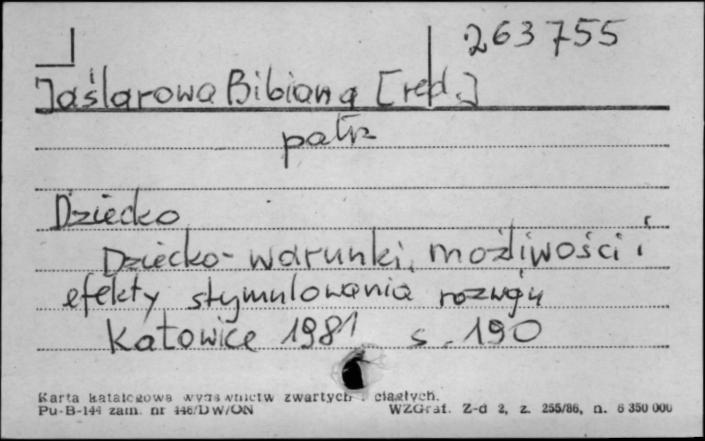 263755
Jaślarowa Bibiana [red.]
patrz
Dziecko
Dziecko - warunki, możliwości i
efekty stymulowania rozwoju
Katowice 1981 s. 190
Karta katalogowa wydawnictw zwartych i ciągłych.
Pu-B-144 zam. nr 446/DW/ON WZGraf. Z-d 2, z. 255/86, n. 6 350 000